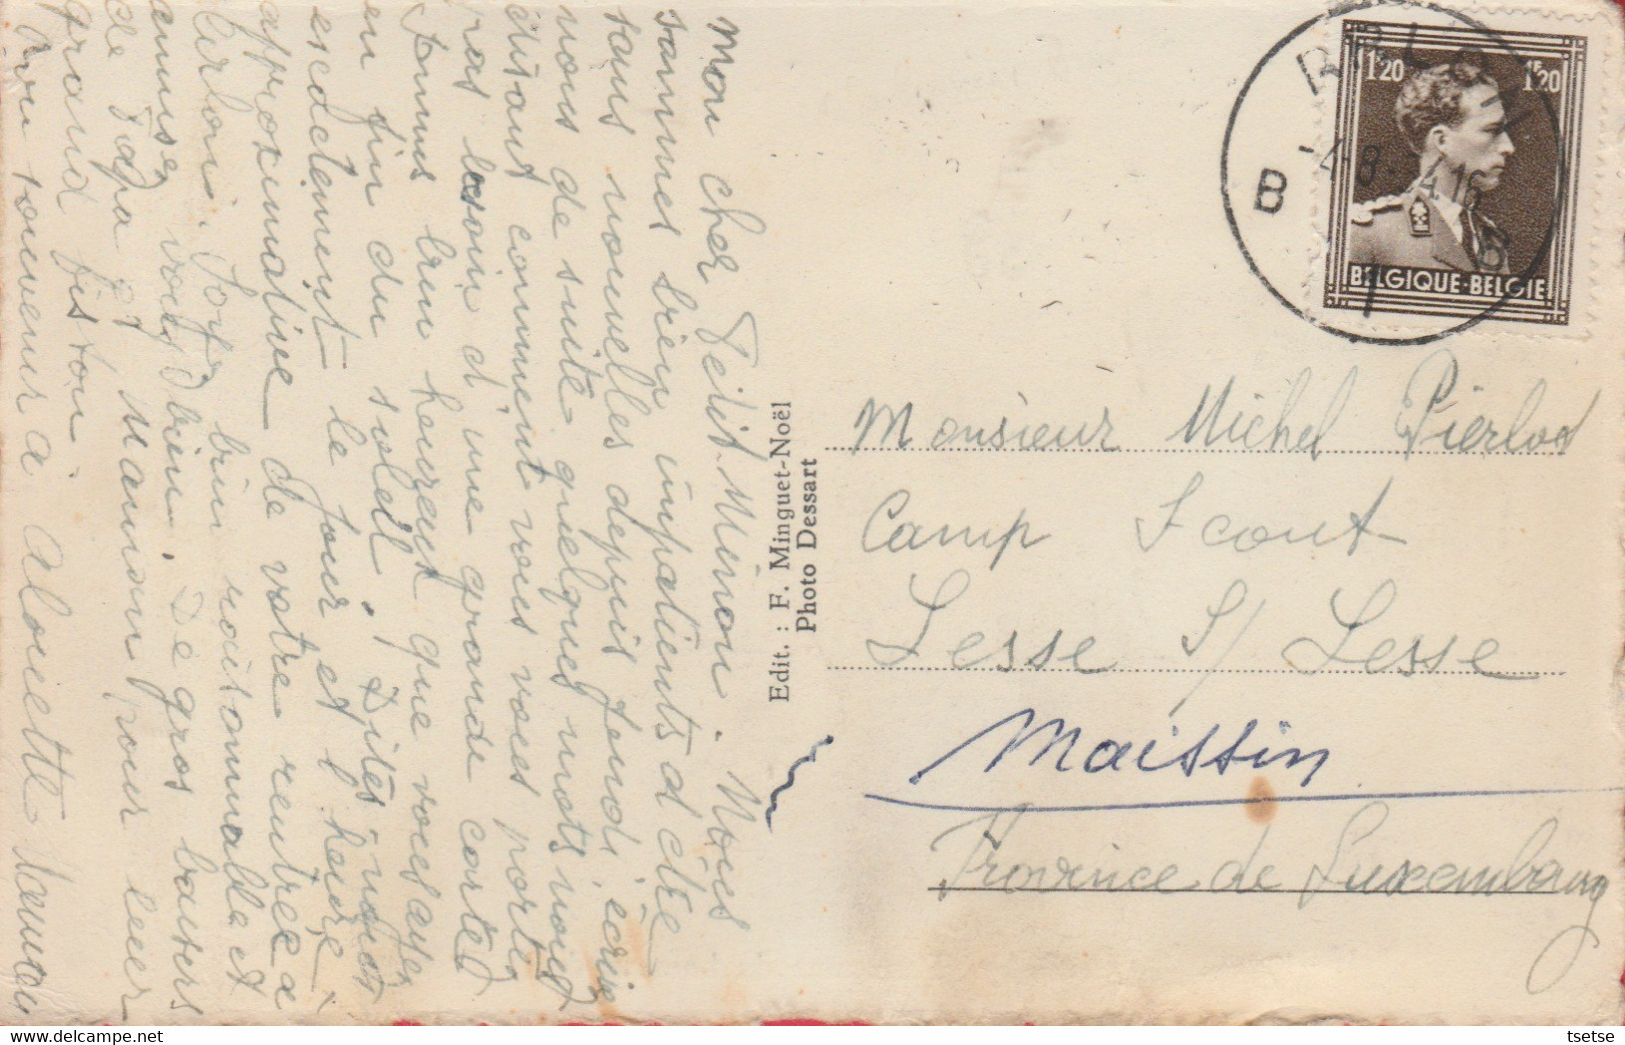 Mon cher Petit Minou. Nous
sommes bien impatients d'être
sans nouvelles depuis jeudi, écris
nous de suite quelques mots nous
disant comment vous vous portez
pas besoin d'une grande carte
bien heureux que vous ayez
en fin du soleil. Dites-nous
exactement le jour et l'heure
approximative de votre rentrée a
Arlon. Soyez bien raisonnable et
amusez vous bien. De gros baisers
de Papa et Maman pour leur
grand fiston.
Bon souvenir a Alouette
Edit. : F. Minguet-Noël
Photo Dessart
1F20 1F20
BELGIQUE-BELGIE
B
-4-8
16
B
1
Monsieur Michel Pierlot
Camp Scout
Lesse S/ Lesse
Maissin
Province de Luxembourg
tsetse